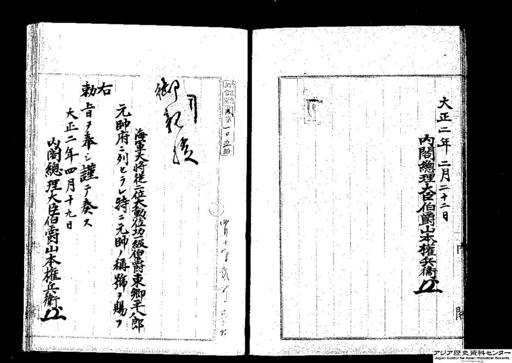 大正二年二月二十二日
内閣總理大臣伯爵山本權兵衛
御親裁
海軍大將從二位大勲位功一級伯爵東郷平八郎
元帥府ニ列セラレ特ニ元帥ノ稱號ヲ賜フ
右
勅旨ヲ奉シ謹テ奏ス
大正二年四月十九日
内閣總理大臣伯爵山本權兵衛
アジア歴史資料センター
Japan Center for Asian Historical Records